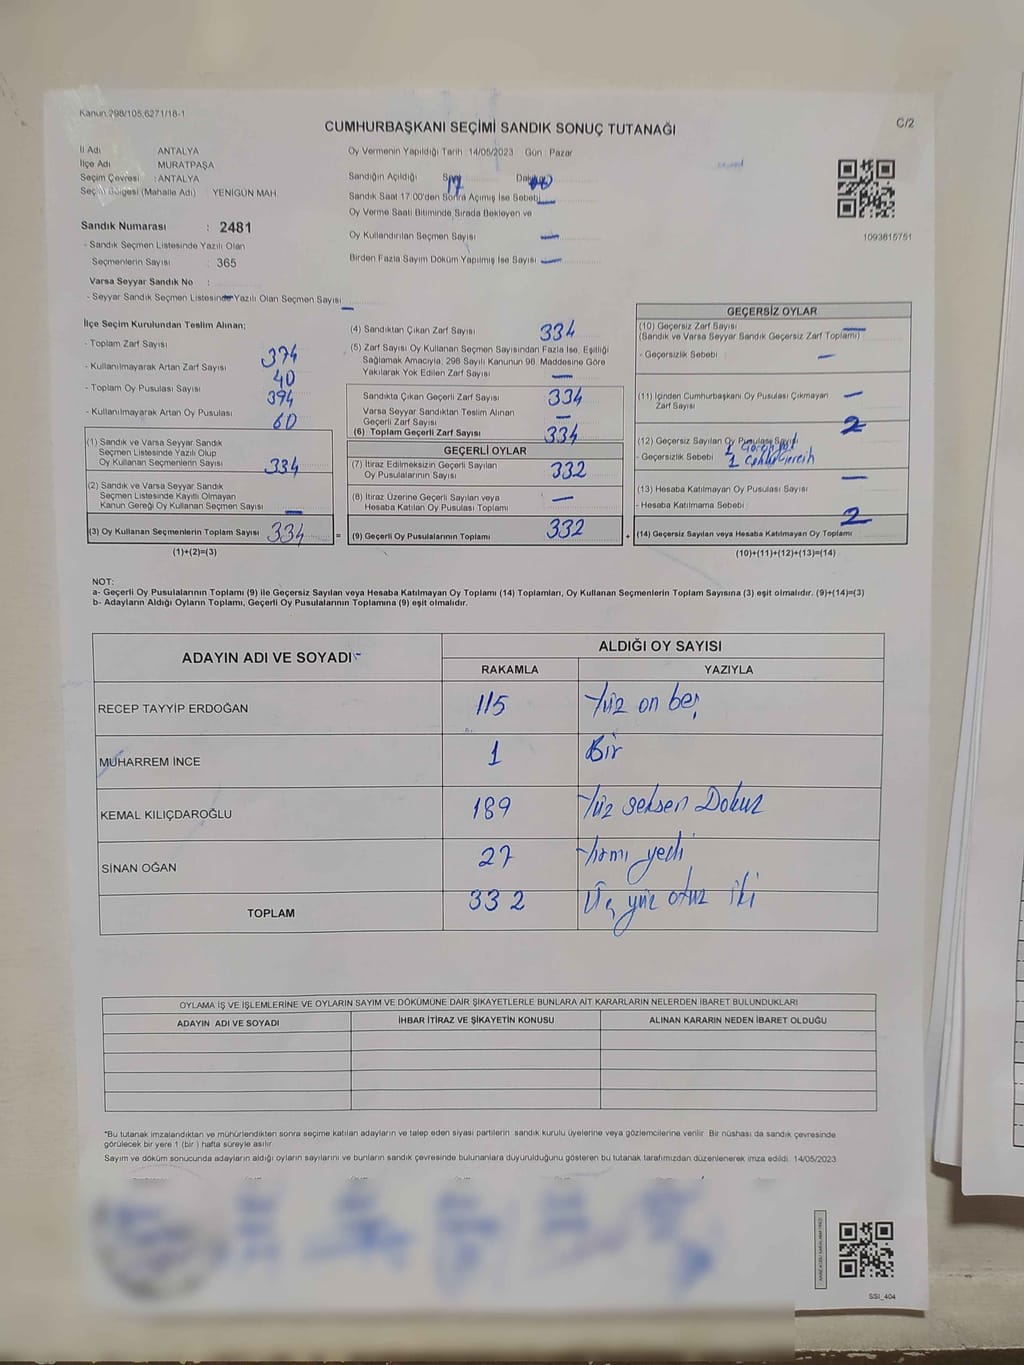 Kanun:298/105,6271/18-1
C/2
CUMHURBAŞKANI SEÇİMİ SANDIK SONUÇ TUTANAĞI
İl Adı ANTALYA
İlçe Adı MURATPAŞA
Seçim Çevresi : ANTALYA
Seçim Bölgesi (Mahalle Adı) : YENİGÜN MAH
Sandık Numarası : 2481
- Sandık Seçmen Listesinde Yazılı Olan
Seçmenlerin Sayısı : 365
Varsa Seyyar Sandık No :
- Seyyar Sandık Seçmen Listesinde Yazılı Olan Seçmen Sayısı —
Oy Vermenin Yapıldığı Tarih : 14/05/2023 Gün : Pazar
Sandığın Açıldığı Saat 17 Dakika
Sandık Saat 17.00'den Sonra Açılmış İse Sebebi —
Oy Verme Saati Bitiminde Sırada Bekleyen ve
Oy Kullandırılan Seçmen Sayısı —
Birden Fazla Sayım Döküm Yapılmış İse Sayısı —
1093815751
İlçe Seçim Kurulundan Teslim Alınan;
- Toplam Zarf Sayısı 374
- Kullanılmayarak Artan Zarf Sayısı 40
- Toplam Oy Pusulası Sayısı 394
- Kullanılmayarak Artan Oy Pusulası 60
(1) Sandık ve Varsa Seyyar Sandık
Seçmen Listesinde Yazılı Olup
Oy Kullanan Seçmenlerin Sayısı 334
(2) Sandık ve Varsa Seyyar Sandık
Seçmen Listesinde Kayıtlı Olmayan
Kanun Gereği Oy Kullanan Seçmen Sayısı —
(3) Oy Kullanan Seçmenlerin Toplam Sayısı 334
(1)+(2)=(3)
(4) Sandıktan Çıkan Zarf Sayısı 334
(5) Zarf Sayısı Oy Kullanan Seçmen Sayısından Fazla İse, Eşitliği
Sağlamak Amacıyla; 298 Sayılı Kanunun 98. Maddesine Göre
Yakılarak Yok Edilen Zarf Sayısı —
Sandıkta Çıkan Geçerli Zarf Sayısı 334
Varsa Seyyar Sandıktan Teslim Alınan
Geçerli Zarf Sayısı —
(6) Toplam Geçerli Zarf Sayısı 334
GEÇERLİ OYLAR
(7) İtiraz Edilmeksizin Geçerli Sayılan
Oy Pusulalarının Sayısı 332
(8) İtiraz Üzerine Geçerli Sayılan veya
Hesaba Katılan Oy Pusulası Toplamı —
(9) Geçerli Oy Pusulalarının Toplamı 332
=
+
GEÇERSİZ OYLAR
(10) Geçersiz Zarf Sayısı —
(Sandık ve Varsa Seyyar Sandık Geçersiz Zarf Toplamı)
- Geçersizlik Sebebi —
(11) İçinden Cumhurbaşkanı Oy Pusulası Çıkmayan —
Zarf Sayısı
(12) Geçersiz Sayılan Oy Pusulası Sayısı 2
- Geçersizlik Sebebi
(13) Hesaba Katılmayan Oy Pusulası Sayısı —
- Hesaba Katılmama Sebebi
(14) Geçersiz Sayılan veya Hesaba Katılmayan Oy Toplamı 2
(10)+(11)+(12)+(13)=(14)
NOT:
a- Geçerli Oy Pusulalarının Toplamı (9) ile Geçersiz Sayılan veya Hesaba Katılmayan Oy Toplamı (14) Toplamları, Oy Kullanan Seçmenlerin Toplam Sayısına (3) eşit olmalıdır. (9)+(14)=(3)
b- Adayların Aldığı Oyların Toplamı, Geçerli Oy Pusulalarının Toplamına (9) eşit olmalıdır.
ADAYIN ADI VE SOYADI
ALDIĞI OY SAYISI
RAKAMLA YAZIYLA
RECEP TAYYİP ERDOĞAN 115 Yüz on beş
MUHARREM İNCE 1 Bir
KEMAL KILIÇDAROĞLU 189 Yüz seksen Dokuz
SİNAN OĞAN 27 yedi
TOPLAM 332 Üç yüz otuz iki
OYLAMA İŞ VE İŞLEMLERİNE VE OYLARIN SAYIM VE DÖKÜMÜNE DAİR ŞİKAYETLERLE BUNLARA AİT KARARLARIN NELERDEN İBARET BULUNDUKLARI
ADAYIN ADI VE SOYADI İHBAR İTİRAZ VE ŞİKAYETİN KONUSU ALINAN KARARIN NEDEN İBARET OLDUĞU
*Bu tutanak imzalandıktan ve mühürlendikten sonra seçime katılan adayların ve talep eden siyasi partilerin sandık kurulu üyelerine veya gözlemcilerine verilir. Bir nüshası da sandık çevresinde
görülecek bir yere 1 (bir ) hafta süreyle asılır.
Sayım ve döküm sonucunda adayların aldığı oyların sayılarını ve bunların sandık çevresinde bulunanlara duyurulduğunu gösteren bu tutanak tarafımızdan düzenlenerek imza edildi. 14/05/2023
SSI_404